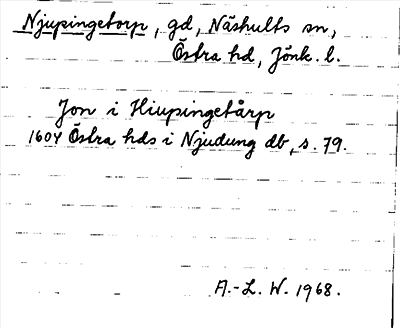 Njupingetorp, gd, Näshults sn,
Östra hd, Jönk. l.
Jon i Hiupingetårp
1604 Östra hds i Njudung db, s. 79.
A.-L. W. 1968.